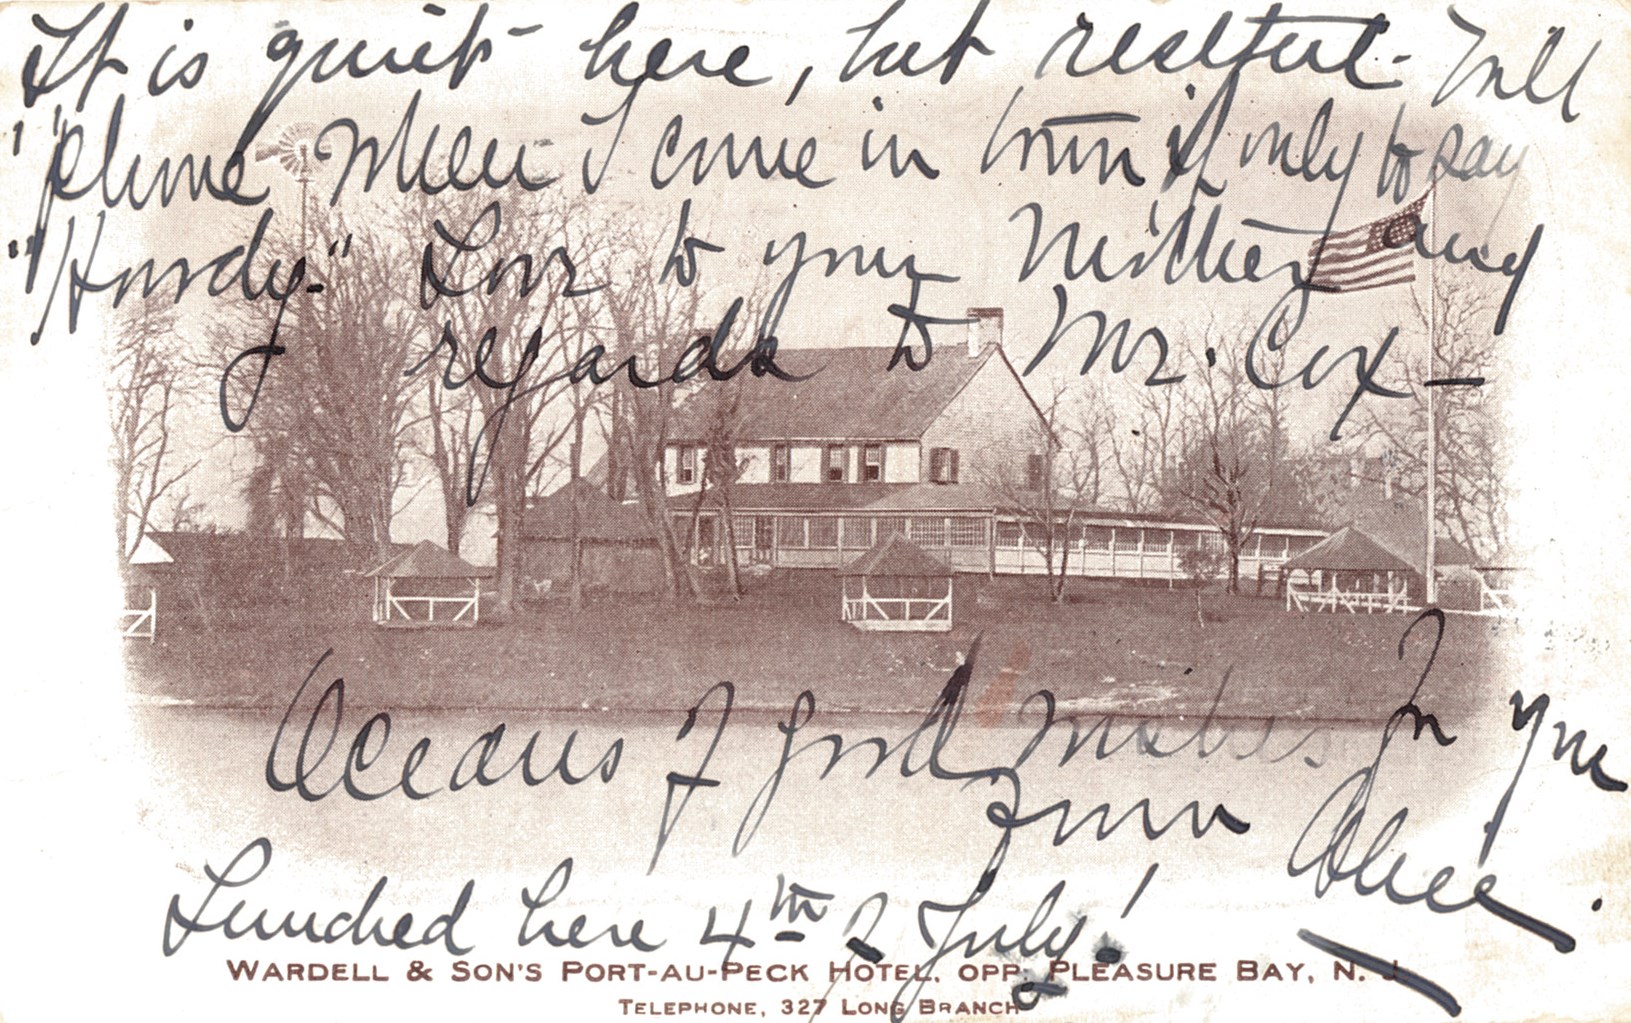 It is quiet here, but restful. Will
'phone when I come in town if only to say
"Howdy." Love to your Mother and
regards to Mr. Cox —
Oceans of good wishes for you
from Alice.
Lunched here 4th of July!
WARDELL & SON'S PORT-AU-PECK HOTEL, OPP. PLEASURE BAY, N. J.
TELEPHONE, 327 LONG BRANCH